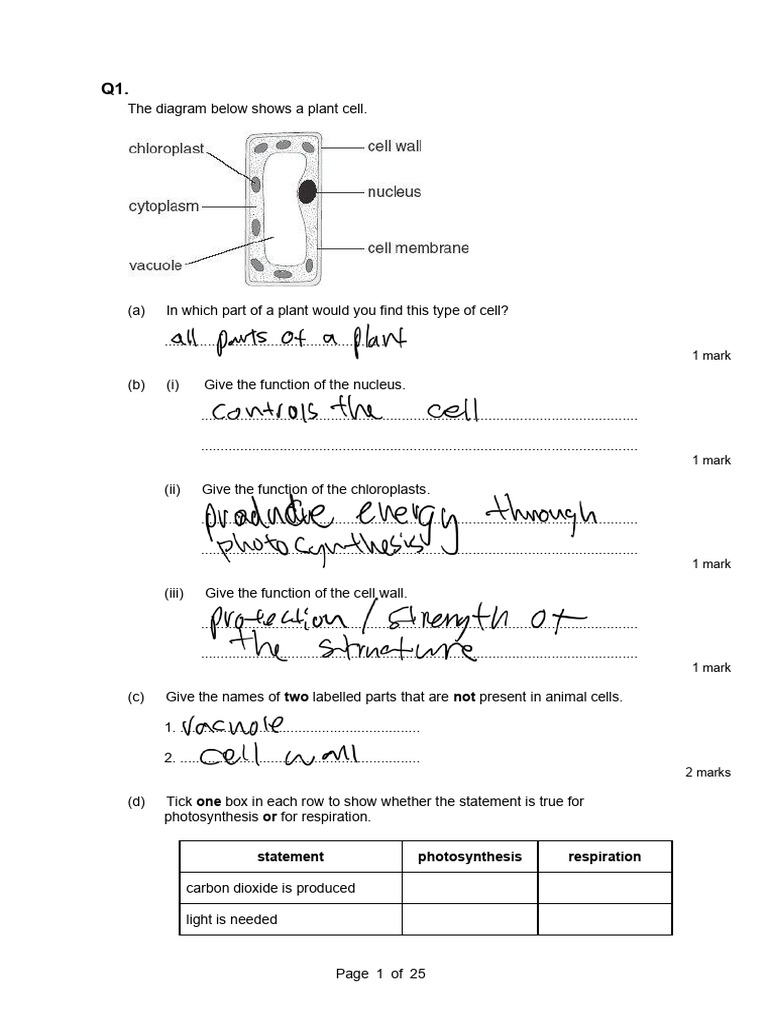 Q1.
The diagram below shows a plant cell.
chloroplast
cell wall
nucleus
cytoplasm
cell membrane
vacuole
(a) In which part of a plant would you find this type of cell?
all parts of a plant
1 mark
(b) (i) Give the function of the nucleus.
controls the cell
1 mark
(ii) Give the function of the chloroplasts.
energy through
photosynthesis
1 mark
(iii) Give the function of the cell wall.
protection / strength of
the structure
1 mark
(c) Give the names of two labelled parts that are not present in animal cells.
1. vacuole
2. cell wall
2 marks
(d) Tick one box in each row to show whether the statement is true for
photosynthesis or for respiration.
statement photosynthesis respiration
carbon dioxide is produced
light is needed
Page 1 of 25